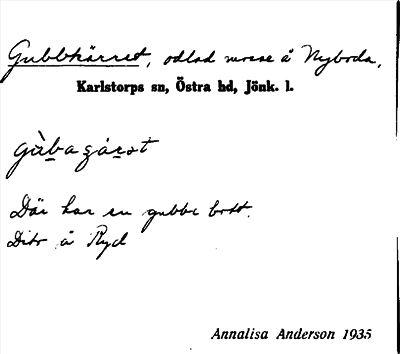 Gubbkärret, odlad mosse å Nyboda.
Karlstorps sn, Östra hd, Jönk. l.
Där har en gubbe bott.
Dito å Ryd
Annalisa Anderson 1935